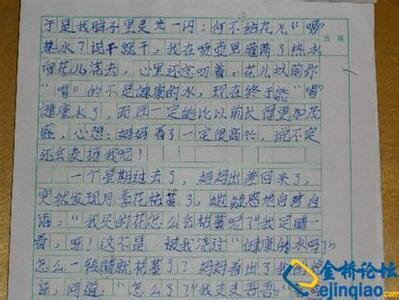 于是我脑子里灵光一闪：何不给花儿“喝”
热水？说干就干，我在喷壶里灌满了热水
向花儿浇去，心里还念叨着：花儿以前你
“喝”的不是健康的水，现在终于能“喝”
健康水了，而且一定能比以前长得更加茂
盛，心想：妈妈看了一定很高兴，说不定
还会表扬我呢！
一个星期过去了，妈妈出差回来了，
突然发现月季花枯萎了，她疑惑地自言自
语：“我买的花怎么会枯萎呢？我定睛一
看，呀！这不是被我浇过“健康的水吗？
怎么一转睛就枯萎了？妈妈看出了我的
证，问道：“怎么了？我支支吾吾
金桥论坛
ejinqiao.com